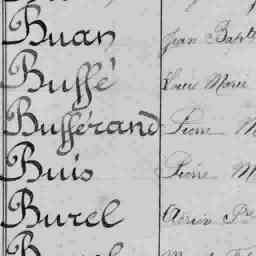 Buan Jean Bapt
Buffé Louis Marie
Bufférand Pierre M
Buis Pierre M
Burel Adrien Pre